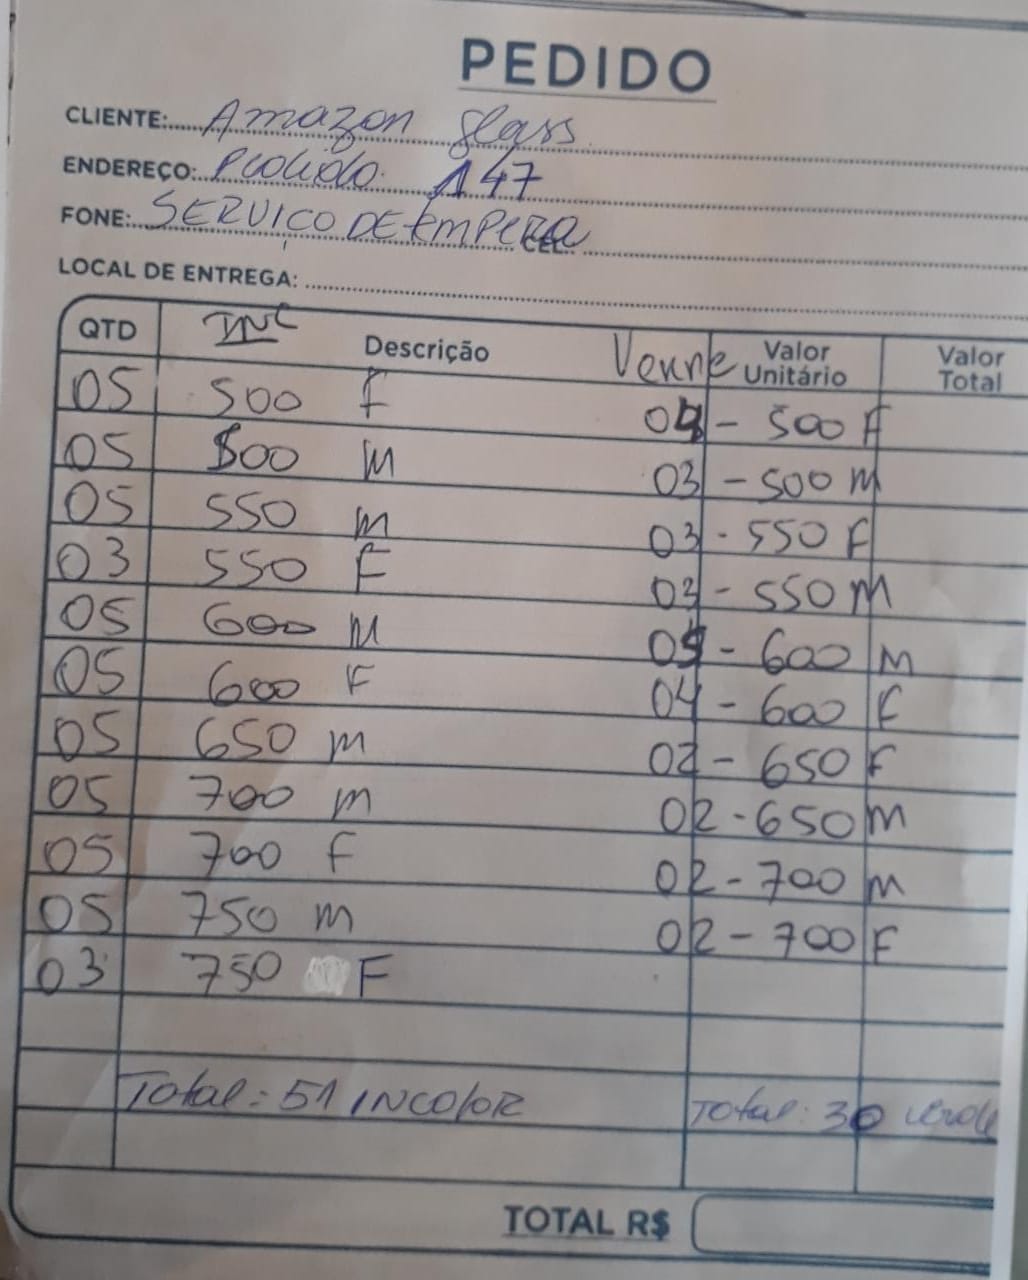 PEDIDO
CLIENTE: Amazon glass
ENDEREÇO: Pedido 147
FONE: SERVIÇO DE tEMPERA CEL:
LOCAL DE ENTREGA:
QTD INC Descrição Verde Valor Unitário Valor Total
05 500 F 04 - 500 F
05 500 M 03 - 500 M
05 550 M 03 - 550 F
03 550 F 03 - 550 M
05 600 M 05 - 600 M
05 600 F 04 - 600 F
05 650 M 02 - 650 F
05 700 M 02 - 650 M
05 700 F 02 - 700 M
05 750 M 02 - 700 F
03 750 F
Total: 51 INCOLOR Total: 30 verde
TOTAL R$